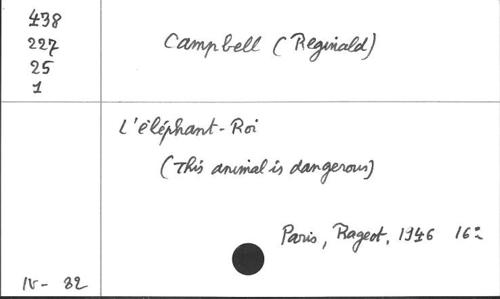 438
227
25
1
Campbell (Reginald)
L'éléphant-Roi
(This animal is dangerous)
Paris, Rageot, 1946 16°
IV- 82